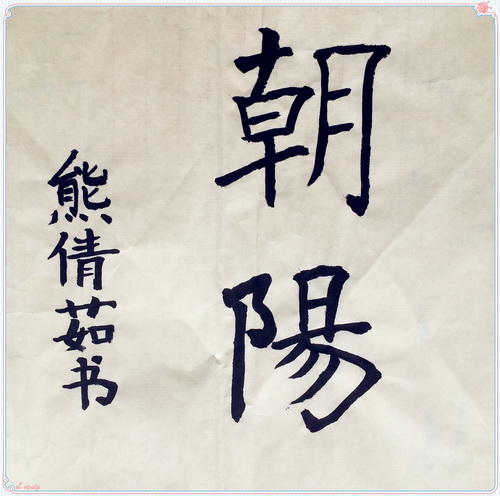 朝陽
熊倩茹书